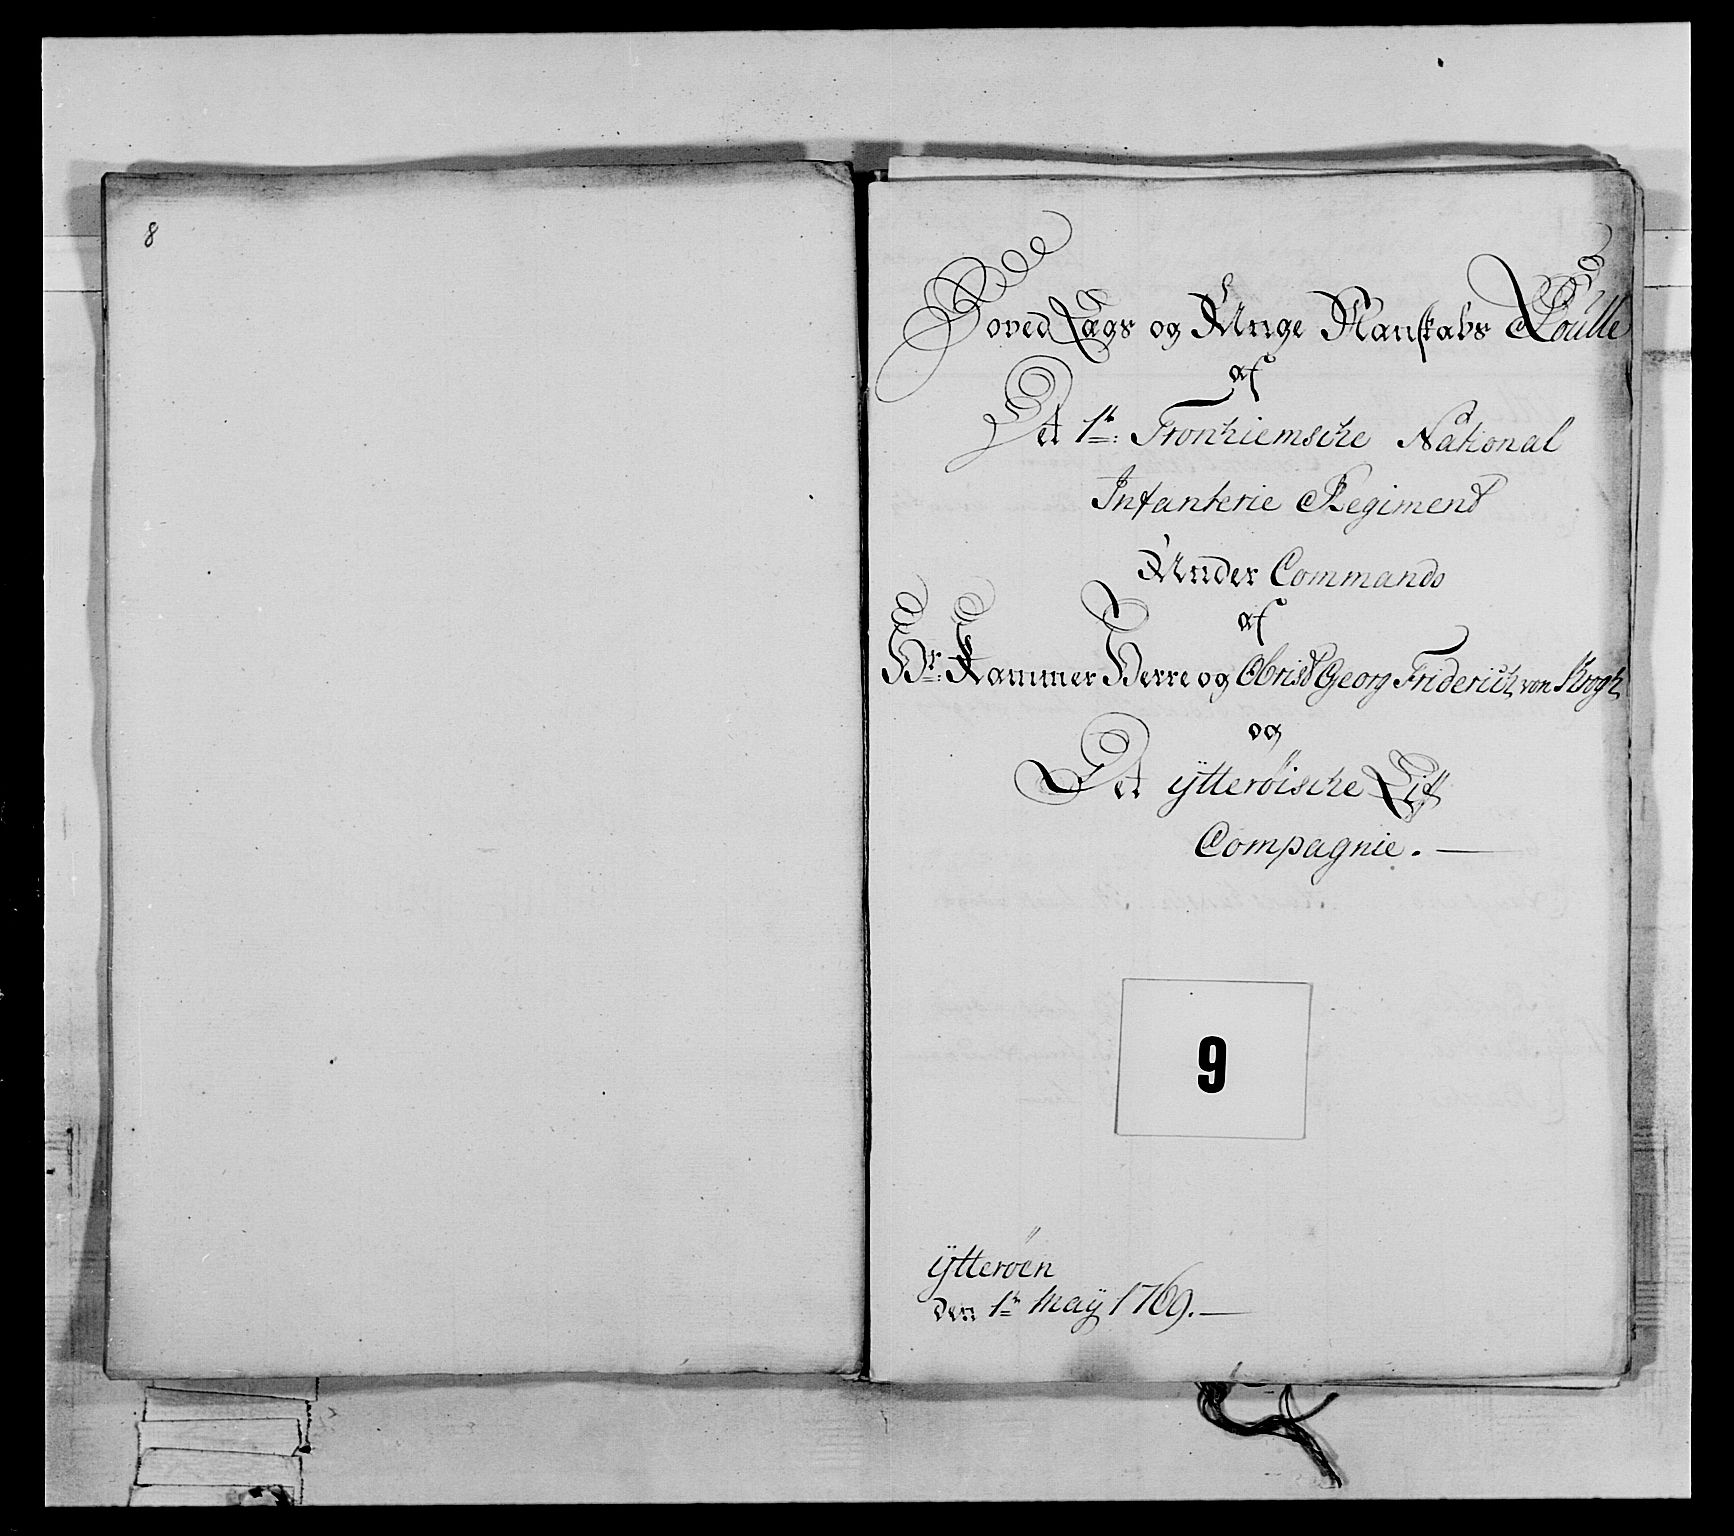 8
Hoved Lægs og Unge Mandskabs Roulle
af
Det 1te: Tronhiemsche National
Infanterie Regiment
Under Commando
af
Hr: Kammer Herre og Obrist Georg Friderich von Krogh
og
Det ÿtteröische Lif
Compagnie.
9
ÿtteröen
den 1te Maÿ 1769.